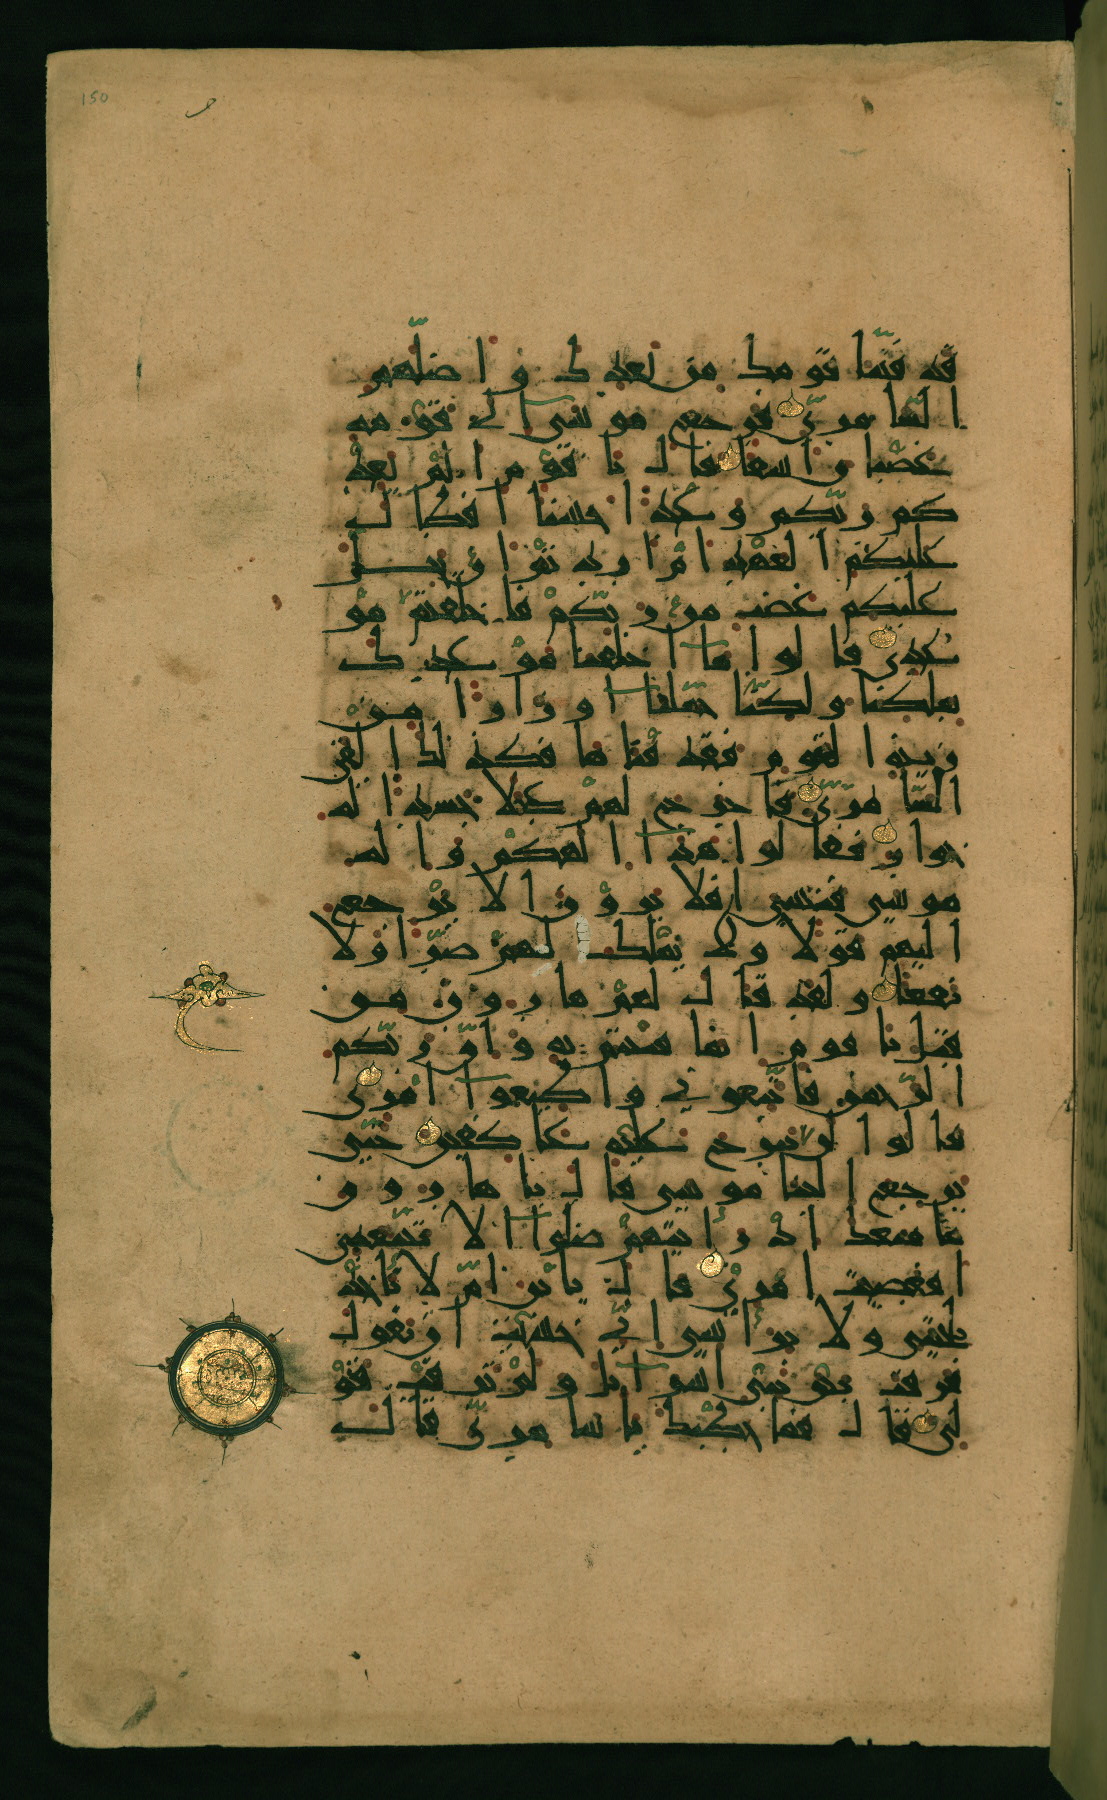 150
قد فتنا قومك من بعدك واضلهم
السامري فرجع موسى الى قومه
غضبان اسفا قال يا قوم الم يعد
كم ربكم وعدا حسنا افطال
عليكم العهد ام اردتم ان يحل
عليكم غضب من ربكم فاخلفتم مو
عدي قالوا ما اخلفنا موعدك
بملكنا ولكنا حملنا اوزارا من
زينة القوم فقذفناها فكذلك القى
السامري فاخرج لهم عجلا جسدا له
خوار فقالوا هذا الهكم واله
موسى فنسي افلا يرون الا يرجع
اليهم قولا ولا يملك لهم ضرا ولا
نفعا ولقد قال لهم هارون من
قبل يا قوم انما فتنتم به وان ربكم
الرحمن فاتبعوني واطيعوا امري
قالوا لن نبرح عليه عاكفين حتى
يرجع الينا موسى قال يا هارون
ما منعك اذ رايتهم ضلوا الا تتبعن
افعصيت امري قال يا بن ام لا تاخذ
بلحيتي ولا براسي اني خشيت ان تقول
فرقت بين بني اسرايل ولم ترقب قو
لي قال فما خطبك يا سامري قال